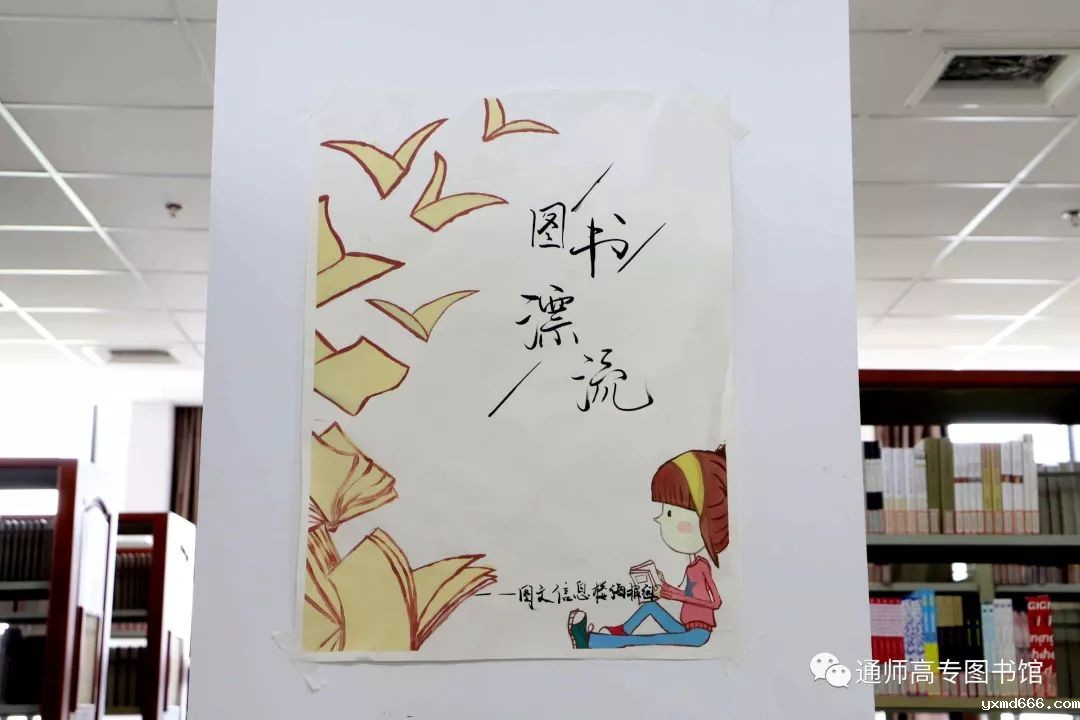 图书
漂
流
——图文信息楼海报组
通师高专图书馆
yxmd666.com